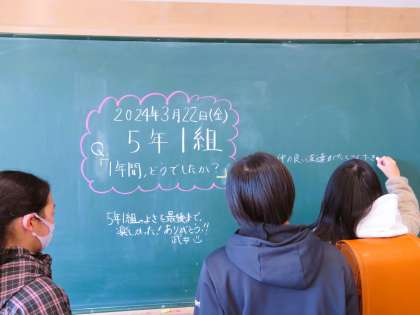 2024年3月22日(金)
5年1組
Q「1年間、どうでしたか?」
5年1組のよさを最後まで、
楽しかった!ありがとう!!
武井
仲の良い友達が